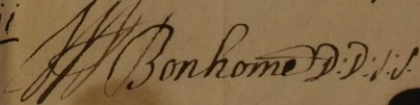 Bonhome D: D: S: S.